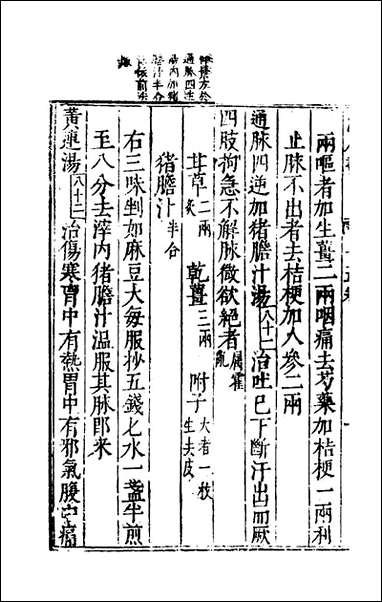 兩嘔者加生薑二兩咽痛去芍藥加桔梗一兩利
止脉不出者去桔梗加人參二兩
通脉四逆加猪膽汁湯八十二治吐已下斷汗出而厥
四肢拘急不解脉微欲絕者屬霍亂
甘草二兩炙 乾薑三兩 附子大者一枚生去皮
猪膽汁半合
右三味剉如麻豆大每服抄五錢匕水一盞半煎
至八分去滓內猪膽汁温服其脉即來
黃連湯八十三治傷寒胷中有熱胃中有邪氣腹中痛
通脉四逆